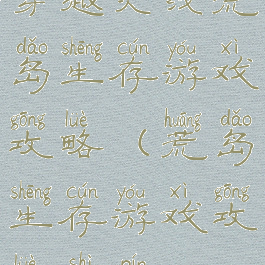 穿越火线荒
dǎo shēng cún yóu xì
岛生存游戏
gōng lüè huāng dǎo
攻略（荒岛
shēng cún yóu xì gōng
生存游戏攻
lüè shì pín